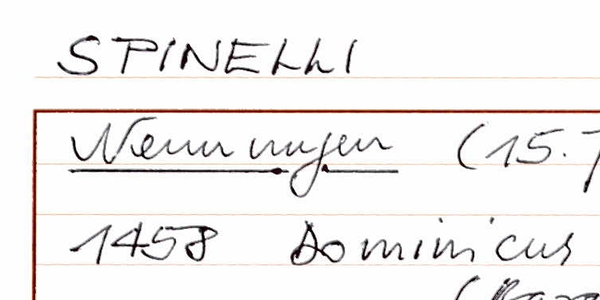 SPINELLI
Nennungen (15.
1458 Dominicus